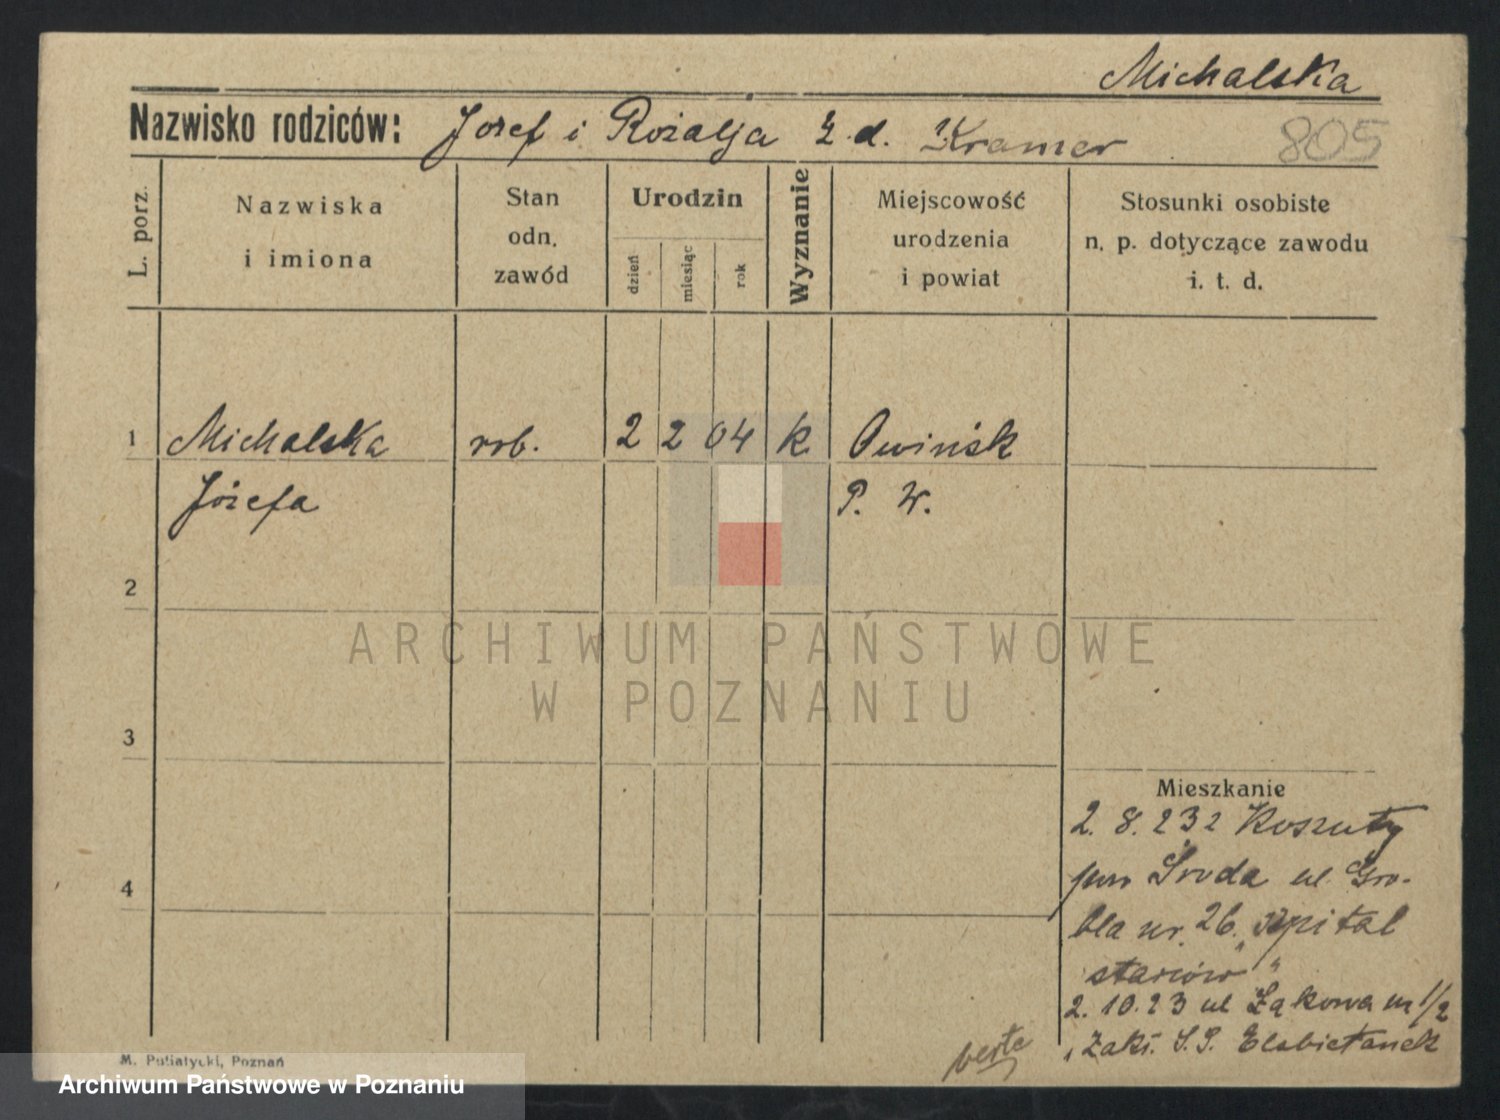 Michalska
Nazwisko rodziców: Józef i Rozalja z d. Kramer
805
L. porz.
Nazwiska
i imiona
Stan
odn.
zawód
Urodzin
dzień
miesiąc
rok
Wyznanie
Miejscowość
urodzenia
i powiat
Stosunki osobiste
n. p. dotyczące zawodu
i. t. d.
1 Michalska rob. 2 2 04 k. Owińsk
Józefa P. W.
2
ARCHIWUM PAŃSTWOWE
W POZNANIU
3
4
Mieszkanie
2. 8. 23 z Koszuty
pow Środa ul. Gro-
bla nr. 26. szpital
"starców"
2. 10. 23 ul Łąkowa nr 1/2
Zakł. S.S. Elżbietanek
verte
M. Putiatycki, Poznań
Archiwum Państwowe w Poznaniu